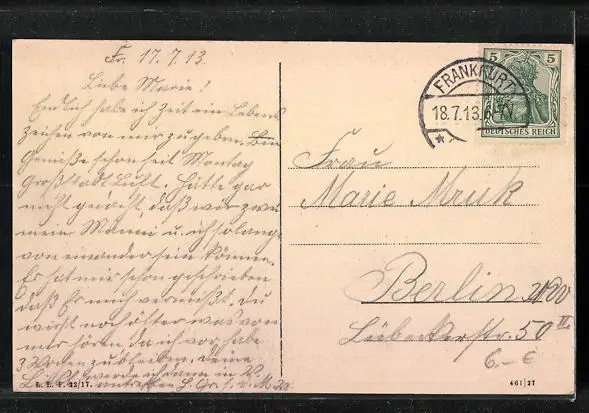 Fr. 17.7.13.
Liebe Marie!
Endlich habe ich Zeit ein Lebens
zeichen von mir zu geben. Bin
Genieße schon seit Montag
Großstadt Luft. Hätte gar
nicht gedacht, daß wir zwei
mein Männi u. ich so lang
von einander sein können.
Er hat mir schon geschrieben
daß Er mich vermißt. Du
wirst noch öfter was von
mir hören da ich vor habe
3 Wochen zu bleiben. Deine
L. L. F. 22/17.
FRANKFURT
18.7.13.
5 5
DEUTSCHES REICH
Frau
Marie Mruk
Berlin NW
Lübeckerstr. 50 II.
6.– €
461 27